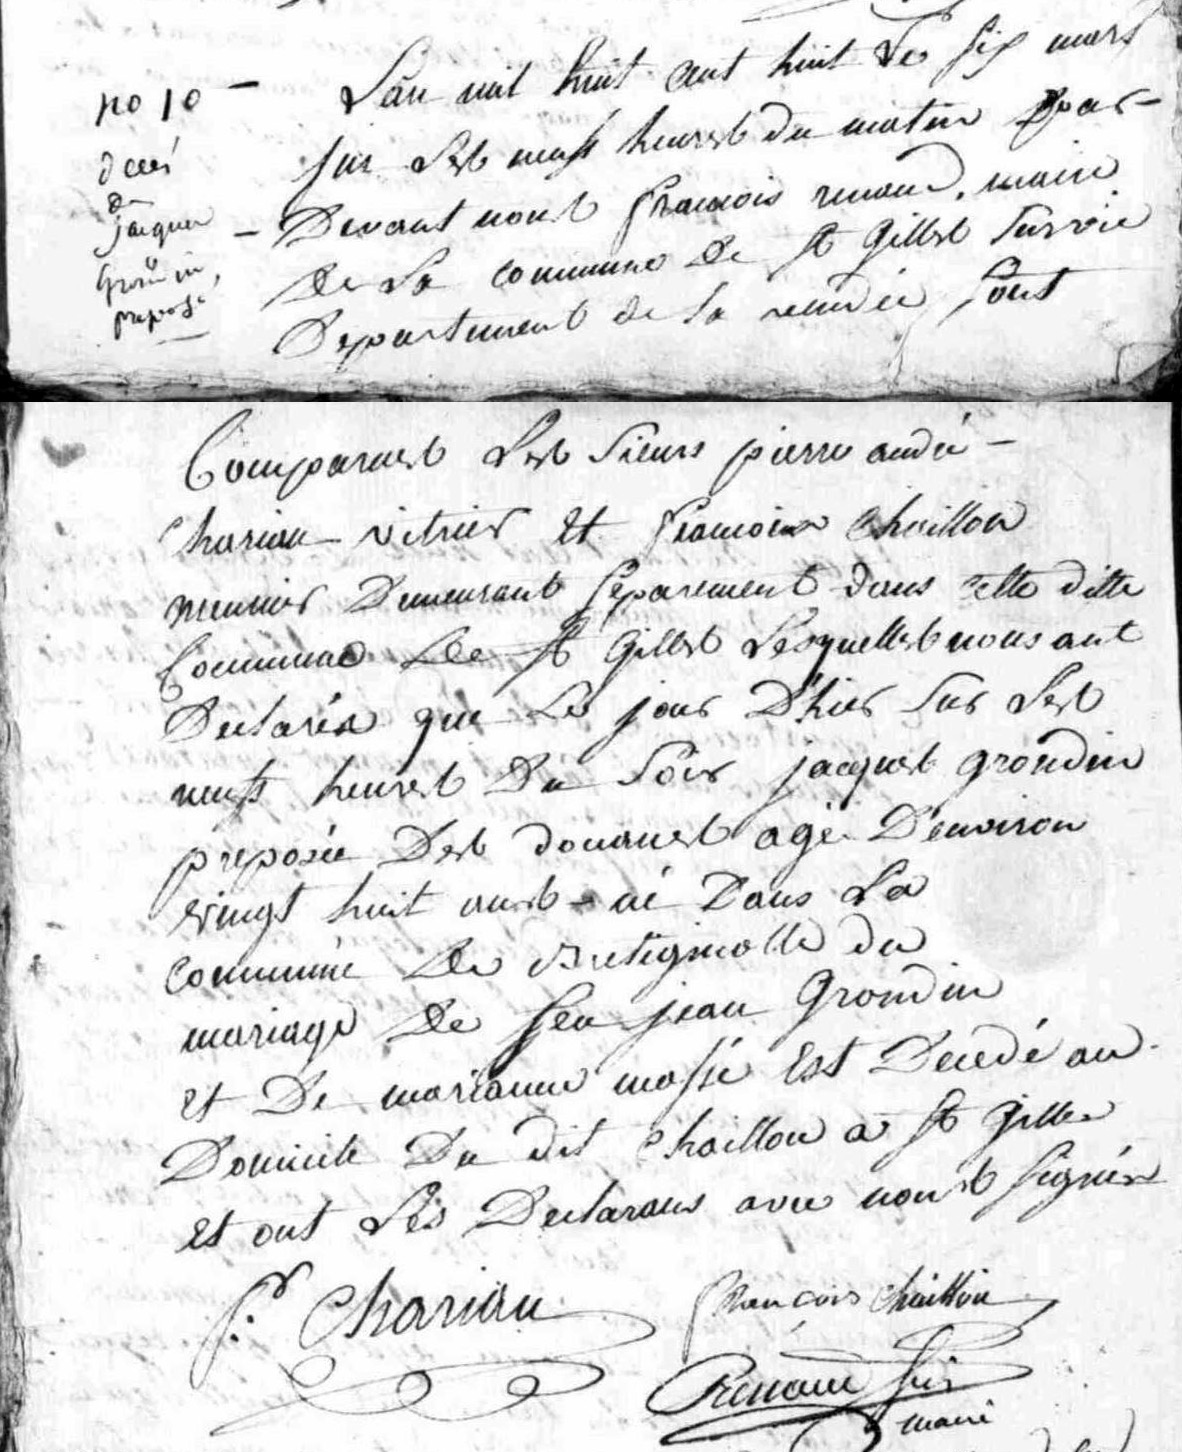 no 10
décés
de
jacques
Grondin,
preposé
L'an mil huit cent huit Le six mars
sur Les neufs heures du matin par-
Devant nous francois renaud, maire
De La commune De St Gilles survie
Departement de La vendée sont
Comparues Les sieurs pierre andré
Chariau vitrier Et francoies Chaillou
meunier Demeurant separement dans cette ditte
Commune De St Gilles Lesquelles nous ont
Declarés que Le jour D'hier sur Les
neufs heures Du soir jacques grondin
preposée Des douannes agé D'environ
vingt huit ans né Dans La
commune De Bretignolle du
mariage De feu jean Grondin
Et De marianne massé Est Decedé au
Domicile Du dit Chaillou a St gilles
Et ont Lés Declarans avec nous signés
P. Chariau
francois chaillou
Renaud
maire